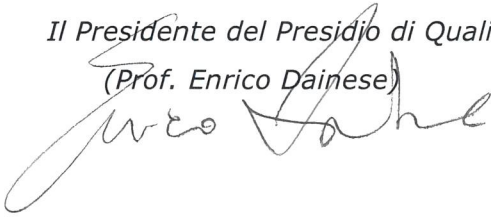 Il Presidente del Presidio di Quali
(Prof. Enrico Dainese)
Enrico Dainese